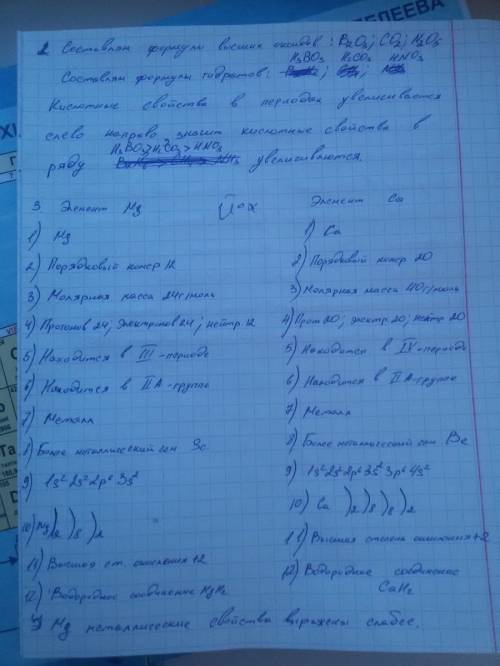 ДЕЛЕЕВА
2 Составлям формулы высших оксидов: B2O3; CO2; N2O5
H3BO3 H2CO3 HNO3
Составлям формулы гидратов:
Кислотные свойства в периодах увеличивается
слево направо значит кислотные свойства в
H3BO3>H2CO3>HNO3
ряду увеличиваются.
3. Элемент Mg
1) Mg
2) Порядковый номер 12
3) Молярная масса 24г/моль
4) Протонов 24; электронов 24; нейтр. 12
5) Находится в III-периоде
6) Находится в IIA-группе
7) Металл
8) Более металлический чем
9) 1s² 2s² 2p⁶ 3s²
10) Mg)2)8)2
11) Высшая ст. окисления +2
12) Водородное соединение MgH2
Элемент Ca
1) Ca
2) Порядковый номер 20
3) Молярная масса 40г/моль
4) Прот 20; электр. 20; нейтр 20
5) Находится в IV-периоде
6) Находится в IIA-группе
7) Металл
8) Более металлический чем Be
9) 1s² 2s² 2p⁶ 3s² 3p⁶ 4s²
10) Ca )2)8)8)2
11) Высшая степень окисления +2
12) Водородное соединение
CaH2
У Mg металлические свойства выражены слабее.